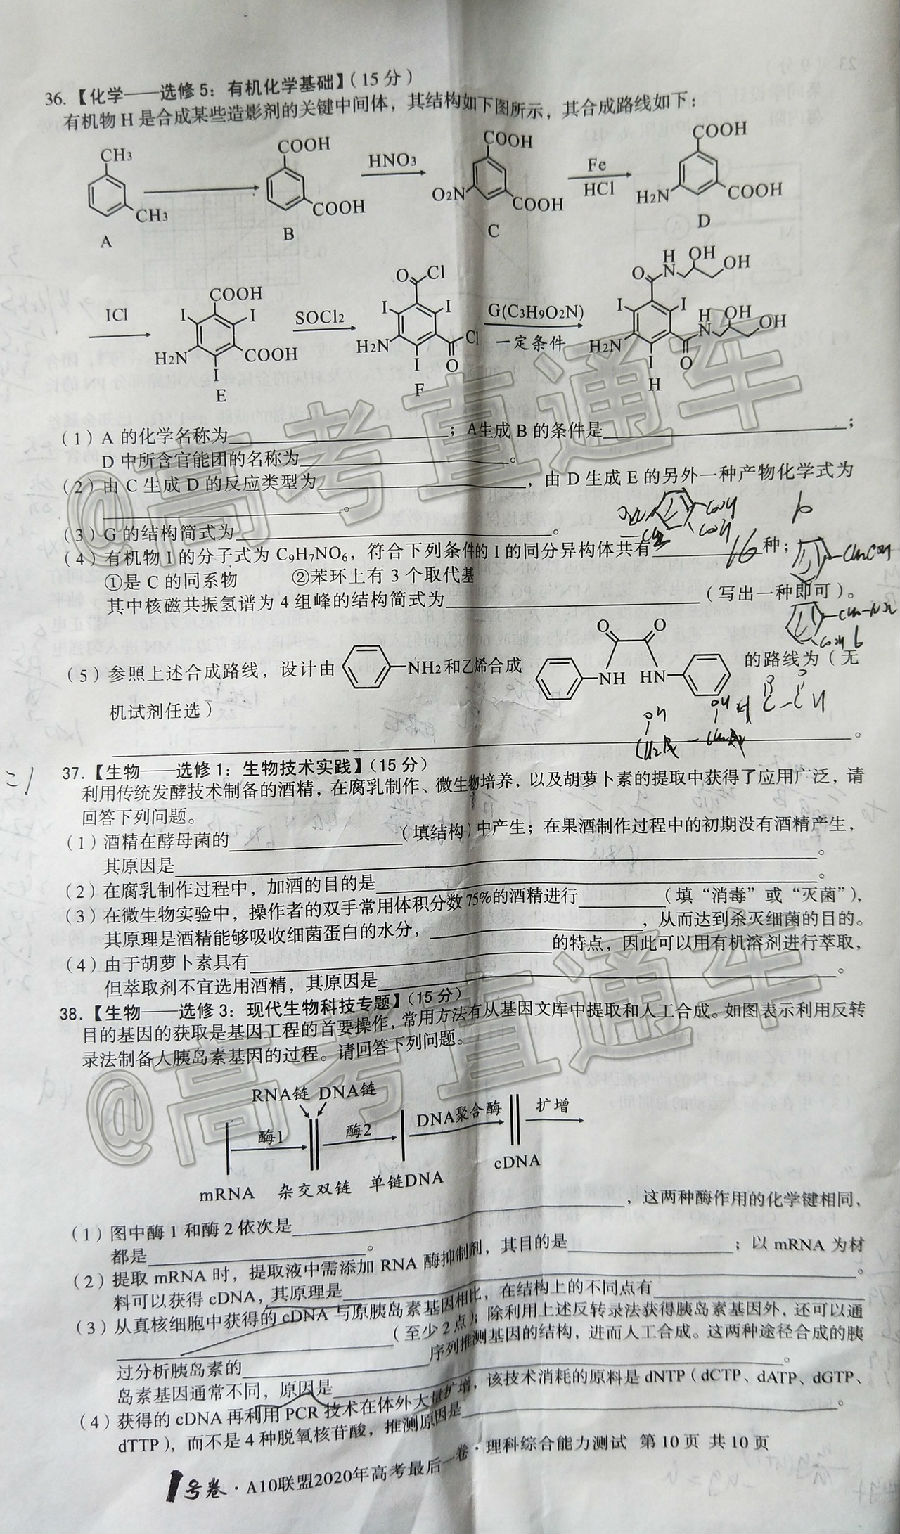 36.【化学——选修5：有机化学基础】（15分）
有机物H是合成某些造影剂的关键中间体，其结构如下图所示，其合成路线如下：
CH3 CH3 A
COOH COOH B
HNO3
COOH O2N COOH C
Fe HCl
COOH H2N COOH D
ICl
COOH I I H2N COOH I E
SOCl2
O Cl I I H2N Cl I O F
G(C3H9O2N) 一定条件
O H N OH OH I I H2N H N OH OH I O H
（1）A的化学名称为；A生成B的条件是；
D中所含官能团的名称为。
（2）由C生成D的反应类型为，由D生成E的另外一种产物化学式为
。
（3）G的结构简式为。
（4）有机物I的分子式为C9H7NO6，符合下列条件的I的同分异构体共有 16 种；
①是C的同系物 ②苯环上有3个取代基
其中核磁共振氢谱为4组峰的结构简式为（写出一种即可）。
（5）参照上述合成路线，设计由 NH2和乙烯合成 O O NH HN 的路线为（无
机试剂任选）
。
37.【生物——选修1：生物技术实践】（15分）
利用传统发酵技术制备的酒精，在腐乳制作、微生物培养，以及胡萝卜素的提取中获得了应用广泛，请
回答下列问题。
（1）酒精在酵母菌的（填结构）中产生；在果酒制作过程中的初期没有酒精产生，
其原因是。
（2）在腐乳制作过程中，加酒的目的是。
（3）在微生物实验中，操作者的双手常用体积分数75%的酒精进行（填“消毒”或“灭菌”），
其原理是酒精能够吸收细菌蛋白的水分，，从而达到杀灭细菌的目的。
（4）由于胡萝卜素具有的特点，因此可以用有机溶剂进行萃取，
但萃取剂不宜选用酒精，其原因是。
38.【生物——选修3：现代生物科技专题】（15分）
目的基因的获取是基因工程的首要操作，常用方法有从基因文库中提取和人工合成。如图表示利用反转
录法制备人胰岛素基因的过程。请回答下列问题。
RNA链 DNA链
酶1 酶2 DNA聚合酶 扩增
mRNA 杂交双链 单链DNA cDNA
（1）图中酶1和酶2依次是，这两种酶作用的化学键相同，
都是。
（2）提取mRNA时，提取液中需添加RNA酶抑制剂，其目的是；以mRNA为材
料可以获得cDNA，其原理是。
（3）从真核细胞中获得的cDNA与原胰岛素基因相比，在结构上的不同点有
（至少2点）；除利用上述反转录法获得胰岛素基因外，还可以通
过分析胰岛素的序列推测基因的结构，进而人工合成。这两种途径合成的胰
岛素基因通常不同，原因是。
（4）获得的cDNA再利用PCR技术在体外大量扩增，该技术消耗的原料是dNTP（dCTP、dATP、dGTP、
dTTP），而不是4种脱氧核苷酸，推测原因是。
1号卷·A10联盟2020年高考最后一卷·理科综合能力测试 第10页 共10页
@高考直通车
@高考直通车